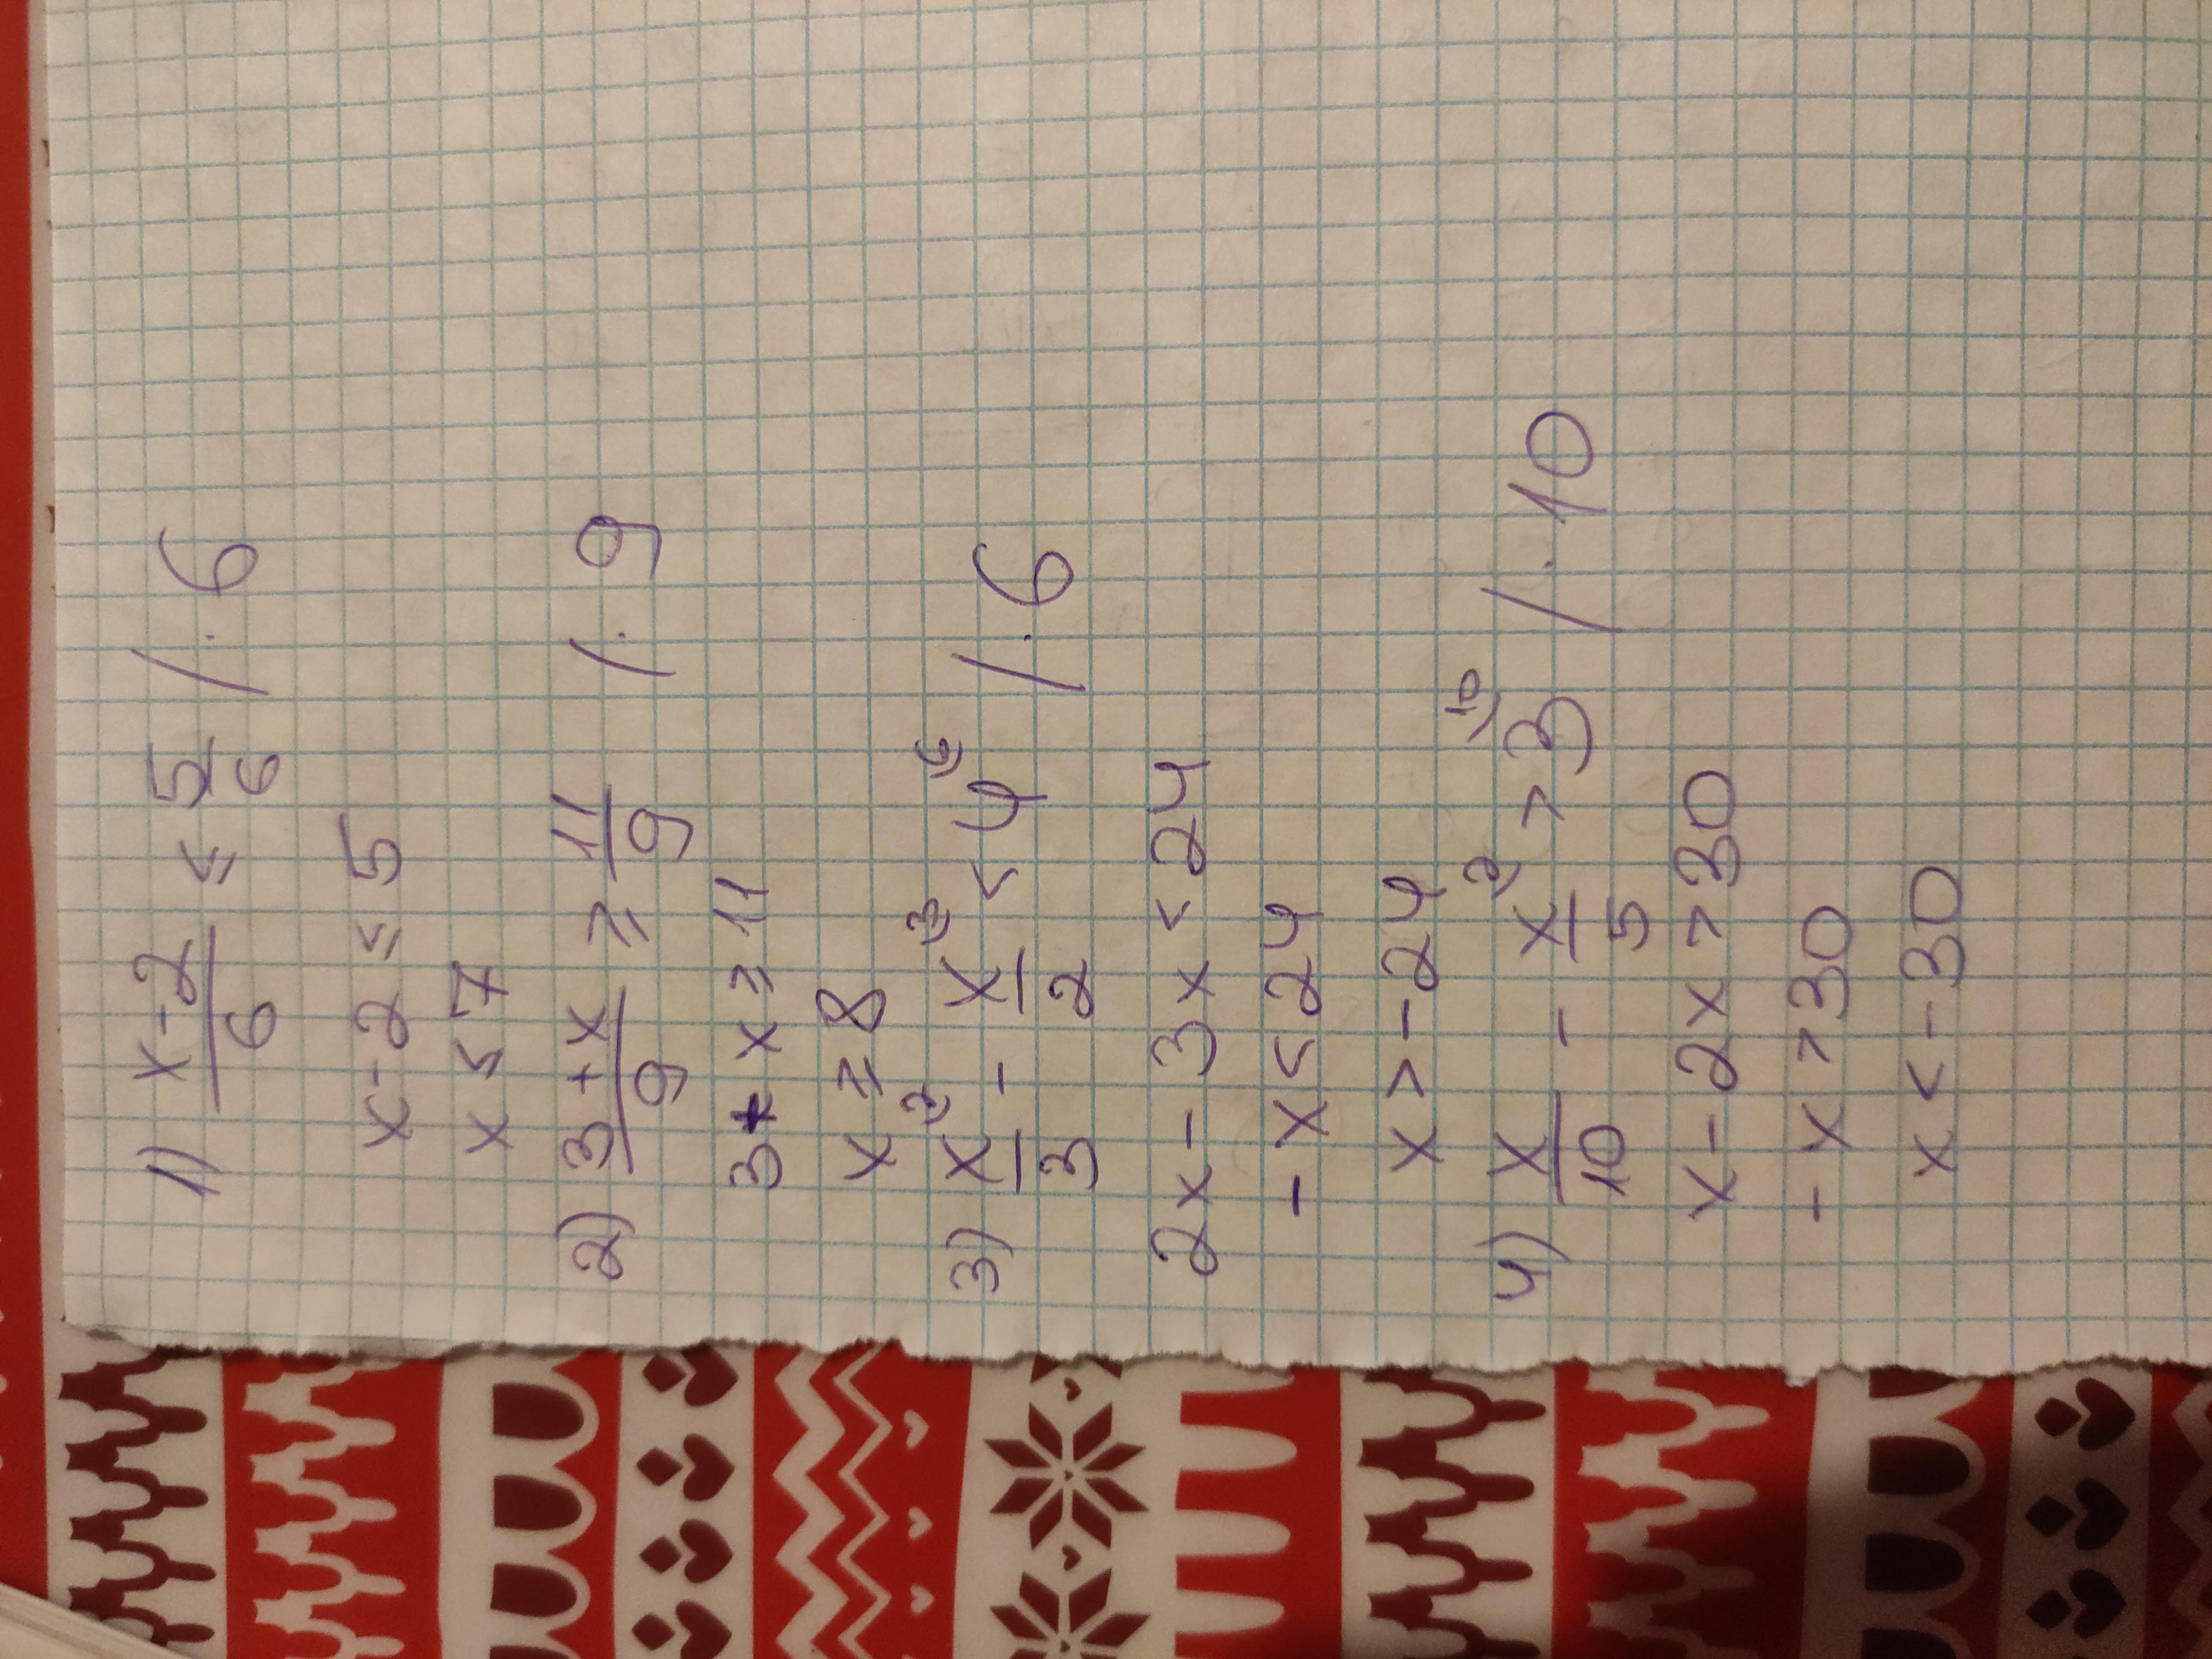 1) (x-2)/6 ≤ 5/6 /·6
x-2≤5
x≤7
2) (3+x)/9 ≥ 11/9 /·9
3+x≥11
x≥8
3) x/3 ²⁾ - x/2 ³⁾ < 4 ⁶⁾ /·6
2x-3x<24
-x<24
x>-24
4) x/10 - x/5 ²⁾ > 3 ¹⁰⁾ /·10
x-2x>30
-x>30
x<-30